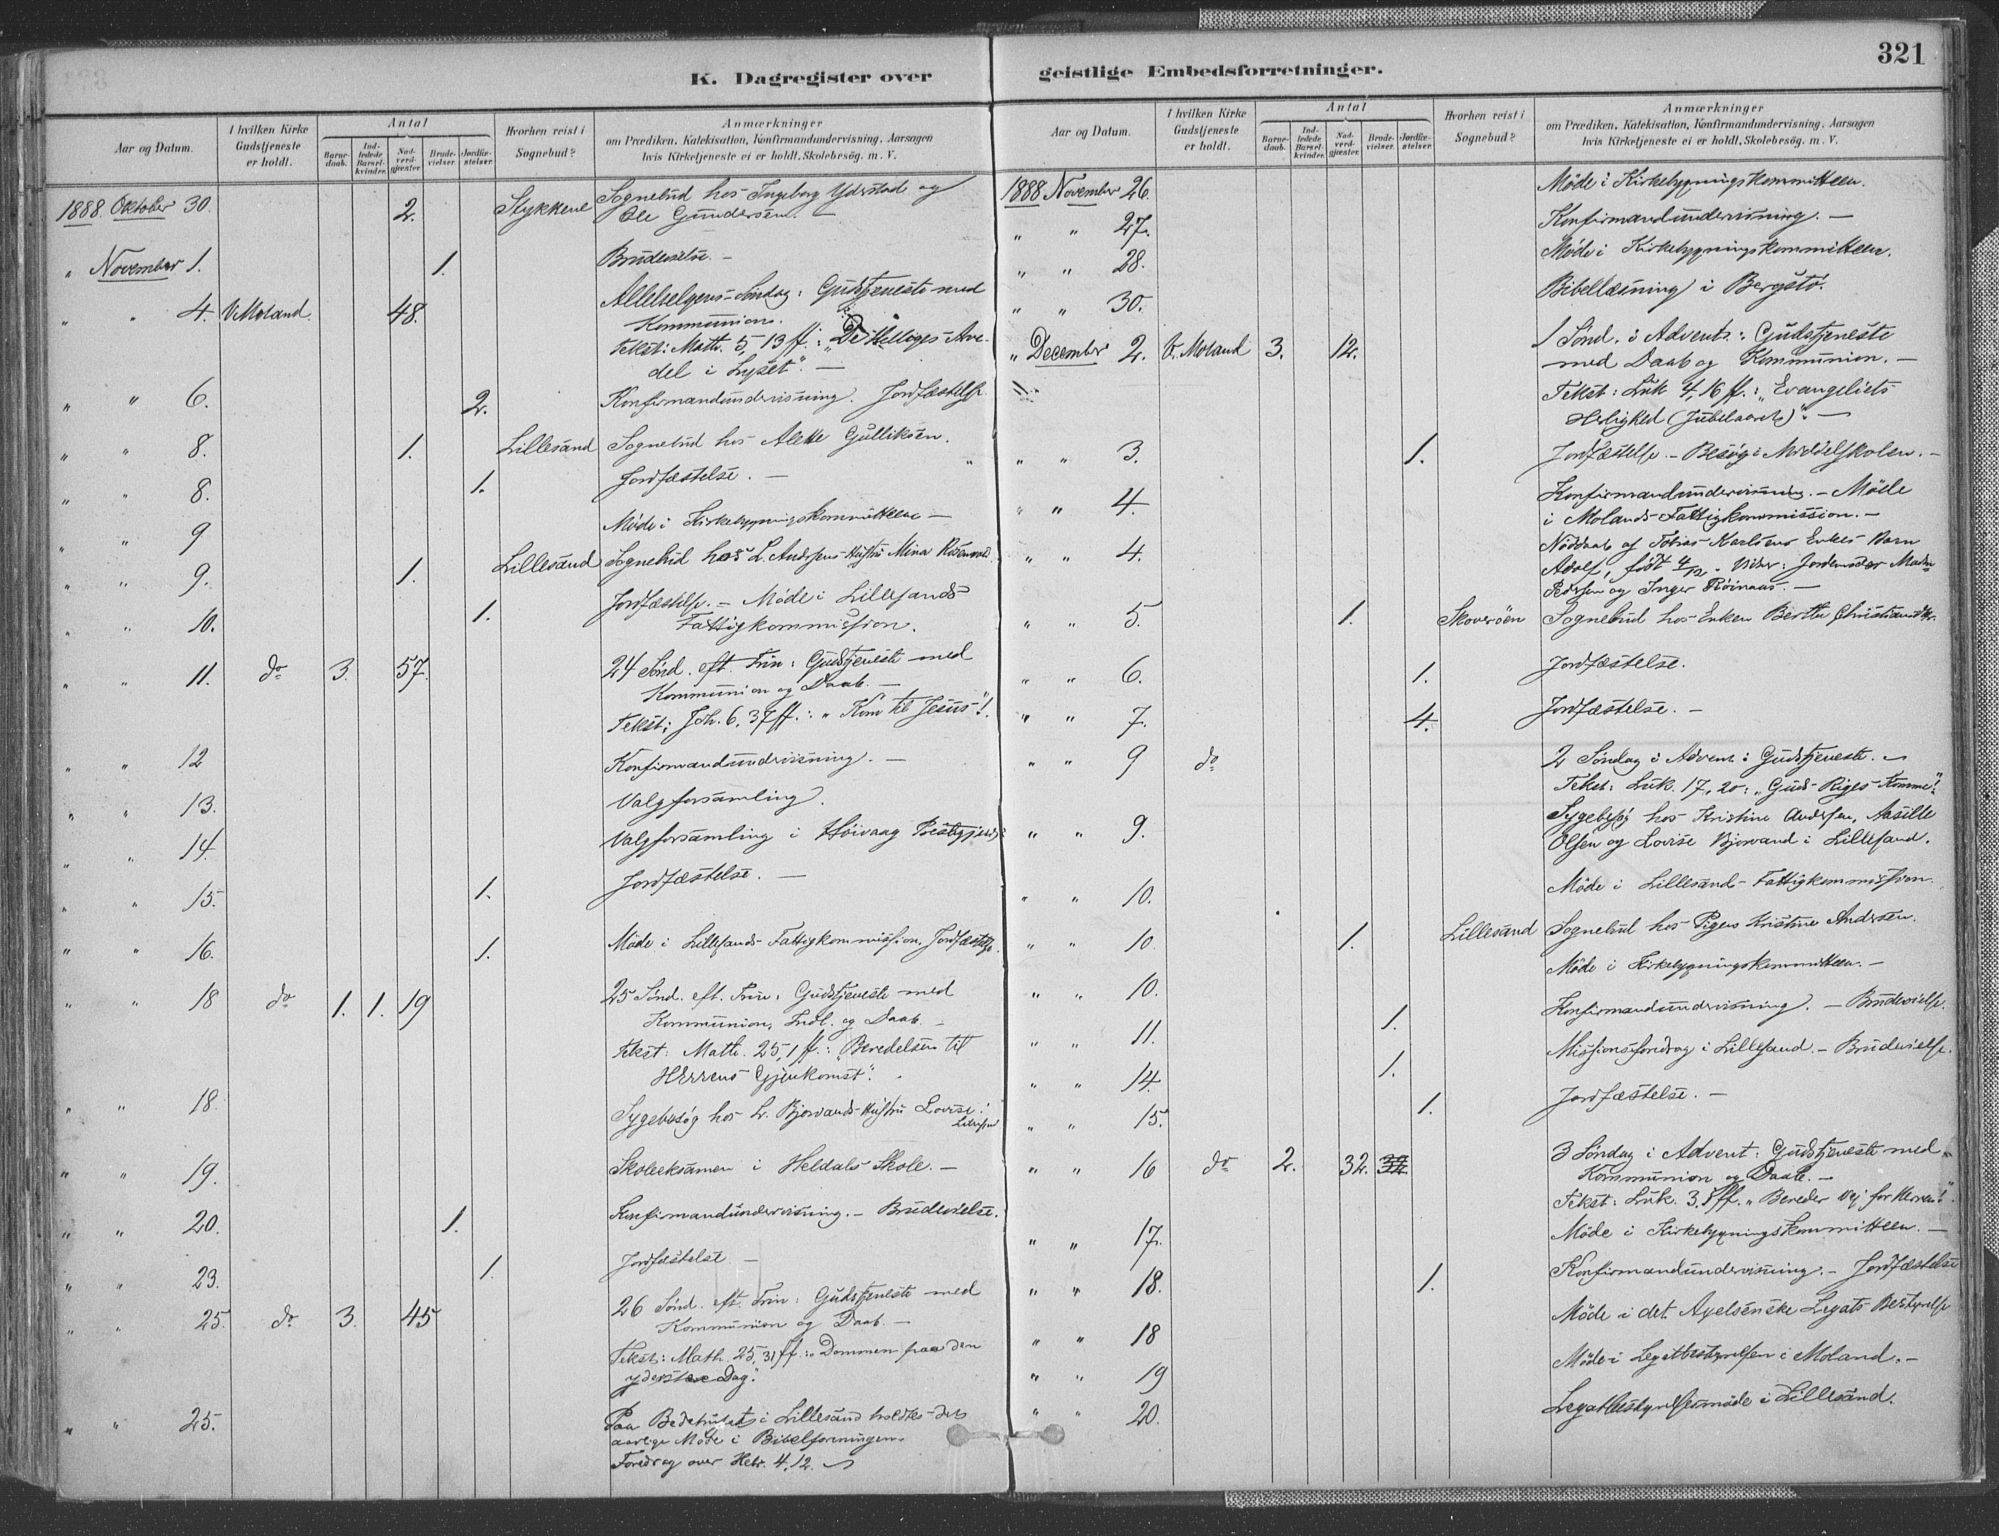 321
K. Dagregister over
Aar og Datum.
I hvilken Kirke Gudstjeneste er holdt.
Antal
Barnedaab.
Indledede Barselkvinder.
Nadverdgjæster.
Brudevielser.
Jordfæstelser.
Hvorhen reist i Sognebud?
Anmærkninger
om Prædiken, Katekisation, Konfirmandundervisning, Aarsagen
hvis Kirketjeneste ei er holdt, Skolebesøg. m. V.
1888 Oktober 30. 2. Stykkene Sognebud hos Ingeborg Yderstad og
Ole Gundersen. —
" November 1. 1. Brudevielse. —
" " 4. V. Moland. 48. Allehelgens-Søndag: Gudstjeneste med
Kommunion.
Tekst: Math. 5, 13 ff.: "De Helliges Arve-
del i Lyset". —
" " 6. 2. Konfirmandundervisning. Jordfæstelse.
" " 8. 1. Lillesand Sognebud hos Alette Gulliksen.
" " 8. 1. Jordfæstelse. —
" " 9 Møde i Kirkebygningskommitteen —
" " 9. 1. Lillesand Sognebud hos L. Andersens Hustru Mina
" " 10. 1. Jordfæstelse. — Møde i Lillesands
Fattigkommission.
" " 11. do 3. 57. 24 Sønd. eft. Trin: Gudstjeneste med
Kommunion og Daab. —
Tekst: Joh. 6, 37 ff.: "Kom til Jesus"!
" " 12 Konfirmandundervisning. —
" " 13. Valgforsamling.
" " 14. Valgforsamling i Høivaag Præstegjeld.
" " 15. 1. Jordfæstelse. —
" " 16. 1. Møde i Lillesands Fattigkommission, Jordfæstelse.
" " 18 do 1. 1. 19 25 Sønd. eft. Trin: Gudstjeneste med
Kommunion, Indl. og Daab. —
Tekst: Math. 25, 1 ff.: "Beredelsen til
Herrens Gjenkomst".
" " 18. Sygebesøg hos L. Bjorvands Hustru Lovise i
Lillesand
" " 19. Skoleeksamen i Heldals Skole. —
" " 20. 1. Konfirmandundervisning. — Brudevielse.
" " 23. 1. Jordfæstelse —
" " 25. do 3. 45 26 Sønd. eft. Trin: Gudstjeneste med
Kommunion og Daab. —
Tekst: Math. 25, 31 ff.: "Dommen paa den
yderste Dag".
" " 25. Paa Bedehuset i Lillesand holdtes det
aarlige Møde i Bibelforeningen.
Foredrag over Hebr. 4, 12.
geistlige Embedsforretninger.
Aar og Datum.
I hvilken Kirke Gudstjeneste er holdt.
Antal
Barnedaab.
Indledede Barselkvinder.
Nadverdgjæster.
Brudevielser.
Jordfæstelser.
Hvorhen reist i Sognebud?
Anmærkninger
om Prædiken, Katekisation, Konfirmandundervisning, Aarsagen
hvis Kirketjeneste ei er holdt, Skolebesøg. m. V.
1888 November 26. Møde i Kirkebygningskommitteen.
" " 27. Konfirmandundervisning. —
" " 28. Møde i Kirkebygningskommitteen.
" " 30. Bibellæsning i Bergstø.
" December 2. V. Moland 3. 12. 1 Sønd. i Advent: Gudstjeneste
med Daab og Kommunion. —
Tekst: Luk. 4, 16 ff.: "Evangeliets
Herlighed (Jubelaaret)". —
" " 3. 1. Jordfæstelse. — Besøg i Middelskolen. —
" " 4. Konfirmandundervisning. — Møde
i Molands Fattigkommission. —
" " 4. Nøddaab af Tobias Karlsens Enkes Barn
Adolf, født 4/12. Vidner: Jordemoder Madm
Pedersen og Inger Røinaas. —
" " 5. 1. Skoverøen Sognebud hos Enken Berthe
" " 6. 1. Jordfæstelse.
" " 7. 4. Jordfæstelse. —
" " 9 do 2 Søndag i Advent: Gudstjeneste.
Tekst: Luk. 17, 20: "Guds Riges Komme".
" " 9. Sygebesøg hos Kristine Andersen, Aasille
Olsen og Lovise Bjorvand i Lillesand.
" " 10. Møde i Lillesand-Fattigkommission.
" " 10. 1. Lillesand Sognebud hos Pigen Kristine Andersen.
" " 10. Møde i Kirkebygningskommitteen. —
" " 11. 1. Konfirmandundervisning. — Brudevielse.
" " 14. 1. Missionsforedrag i Lillesand. — Brudevielse.
" " 15. 1. Jordfæstelse. —
" " 16 do 2. 32. 32 3 Søndag i Advent: Gudstjeneste med
Kommunion og Daab. —
Tekst: Luk. 3, 1 ff. "Bereder Vej for Herren!".
" " 17. Møde i Kirkebygningskommitteen. —
" " 18. 1. Konfirmandundervisning. — Jordfæstelse
" " 18 Møde i det Axelsenske Legats Bestyrelse
" " 19 Møde i Legatbestyrelsen i Moland. —
" " 20. Legatbestyrelsesmøde i Lillesand.